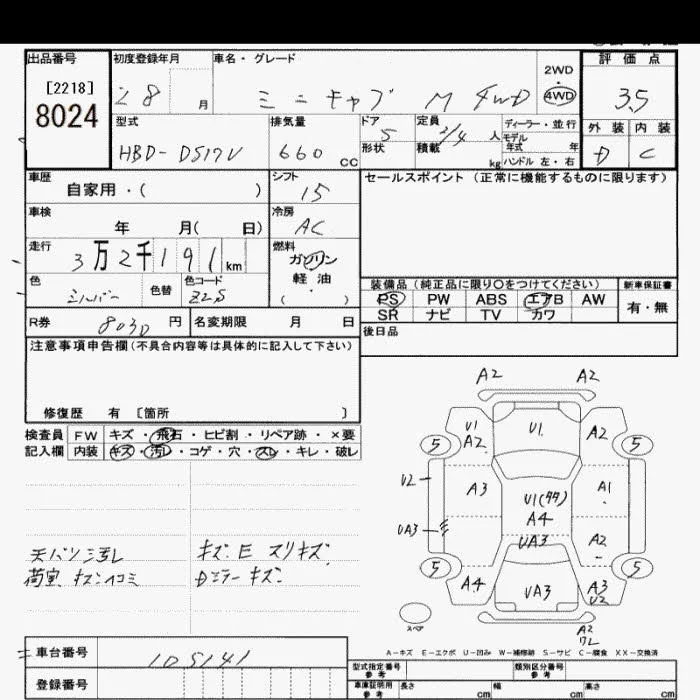 出品番号 初度登録年月 車名・グレード 2WD・4WD 評価点
[2218]
8024
28 月 ミニキャブ M 4WD 3.5
型式 排気量 ドア 定員 ディーラー・並行 外装 内装
HBD-DS17V 660 cc 5 2/4 人 モデル年式 年 D C
形状 積載 kg ハンドル 左・右
車歴 自家用・( ) シフト 15 セールスポイント(正常に機能するものに限ります)
車検 年 月( 日) 冷房 AC
走行 3万2千191km 燃料 ガソリン
軽油
( )
色 シルバー 色替 色コード ZZS
装備品(純正品に限り○をつけてください) 新車保証書
PS PW ABS エアB AW 有・無
SR ナビ TV カワ
R券 8030 円 名変期限 月 日 後日品
注意事項申告欄(不具合内容等は具体的に記入して下さい)
修復歴 有 [箇所 ]
検査員 FW キズ・飛石・ヒビ割・リペア跡・×要
記入欄 内装 キズ・汚レ・コゲ・穴・スレ・キレ・破レ
天バリ汚レ キズ.E スリキズ.
荷室 キズ・ヘコミ Dミラー キズ.
A2 A2
U1 A2 U1. A2
5 5
U2 A3 U1(多) A1
A4
UA3 UA3 A2
5 5
A4 UA3 A3 U2
スペア A2
A-キズ E-エクボ U-凹み W-補修跡 S-サビ C-腐食 XX-交換済
車台番号 105141
型式指定番号 参考 類別区分番号 参考
登録番号 車庫証明用 参考 長さ cm 幅 cm 高さ cm